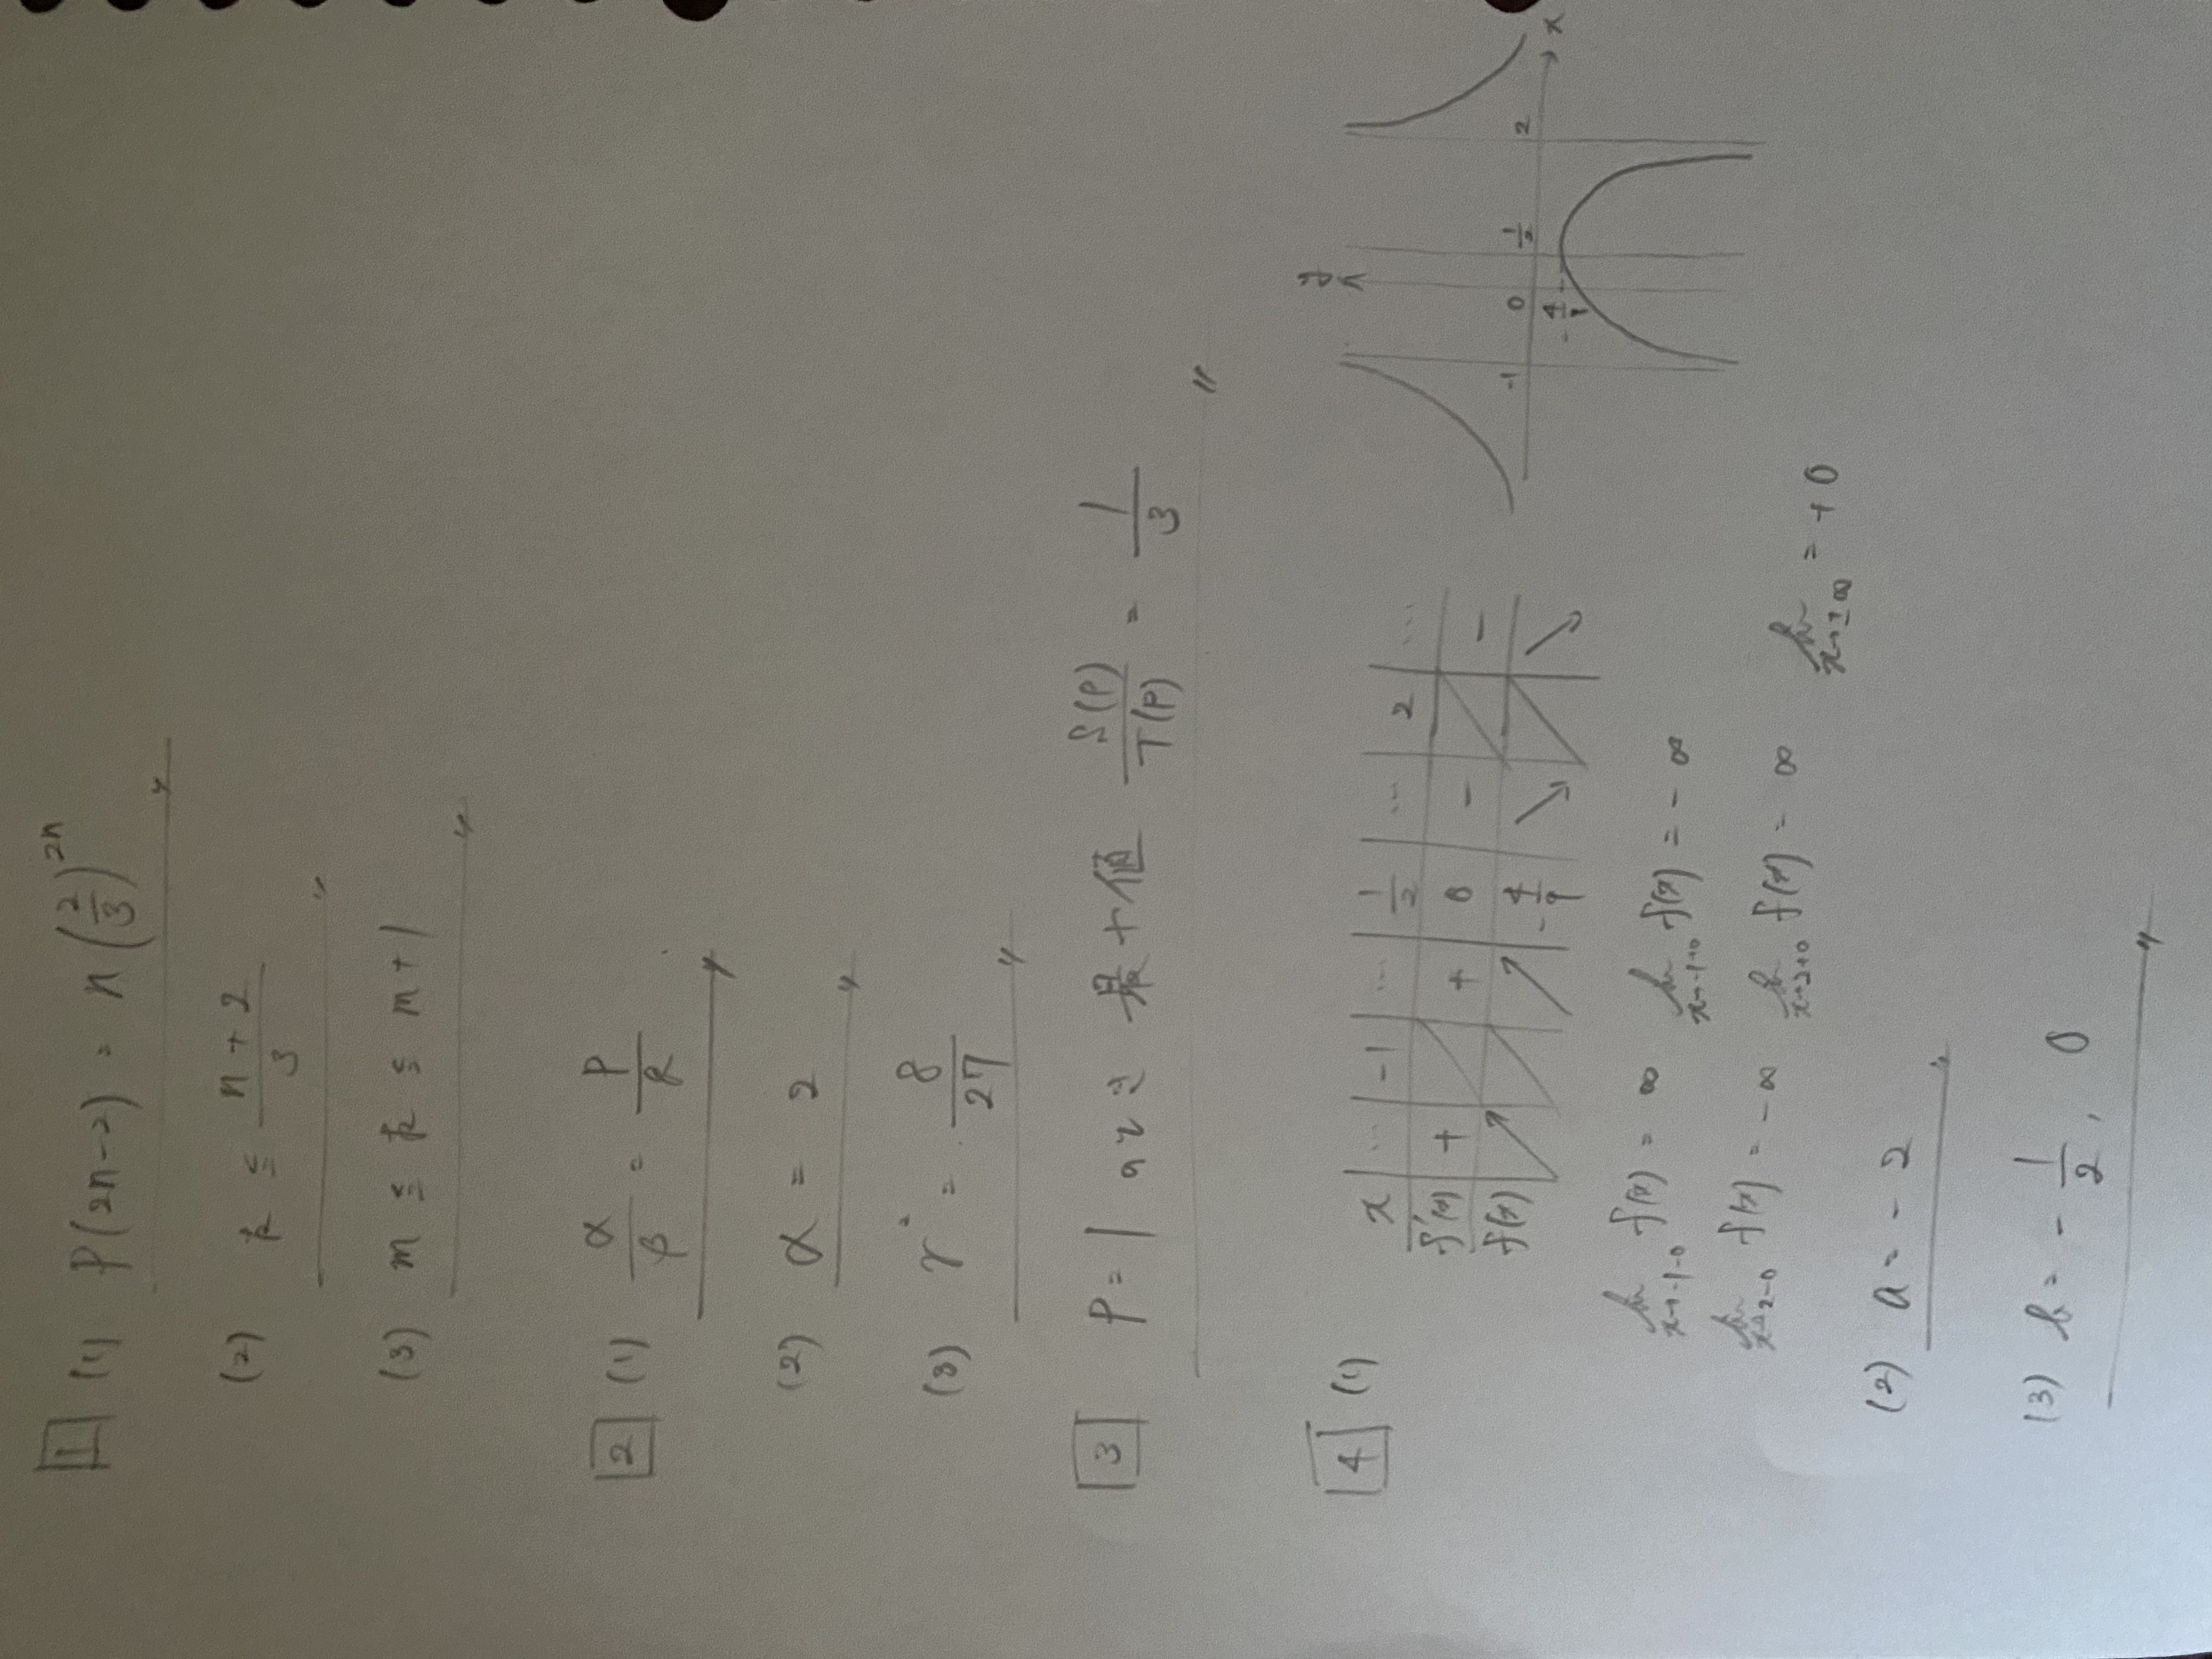 1 (1) P(2n-2) = n(2/3)^{2n}
(2) k ≤ (n+2)/3
(3) m ≤ k ≤ m+1
2 (1) α/β = P/R
(2) α = 2
(3) r = 8/27
3 P=1 のとき 最大値 S(P)/T(P) = 1/3
4 (1)
x … -1 … 1/2 … 2 …
f'(x) + + 0 - -
f(x) ↗ ↗ -4/9 ↘ ↘
y
x
-1 0 1/2 2
-4/9
lim_{x→-1-0} f(x) = ∞ lim_{x→-1+0} f(x) = -∞
lim_{x→2-0} f(x) = -∞ lim_{x→2+0} f(x) = ∞ lim_{x→±∞} = +0
(2) a = -2
(3) b = -1/2, 0